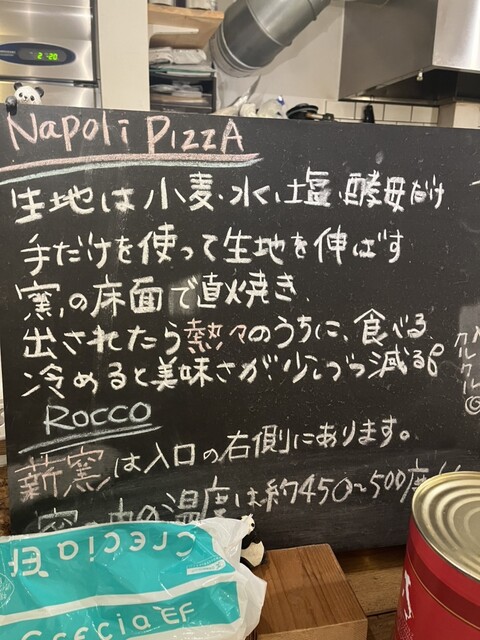 2 20
Napoli PIZZA
生地は小麦、水、塩、酵母だけ
手だけを使って生地を伸ばす
窯の床面で直火焼き
出されたら熱々のうちに、食べる
冷めると美味さが少しづつ減る
クルクル
ROCCO
薪窯は入口の右側にあります。
窯の中の温度は約450~500度
Crecia EF
Crecia EF